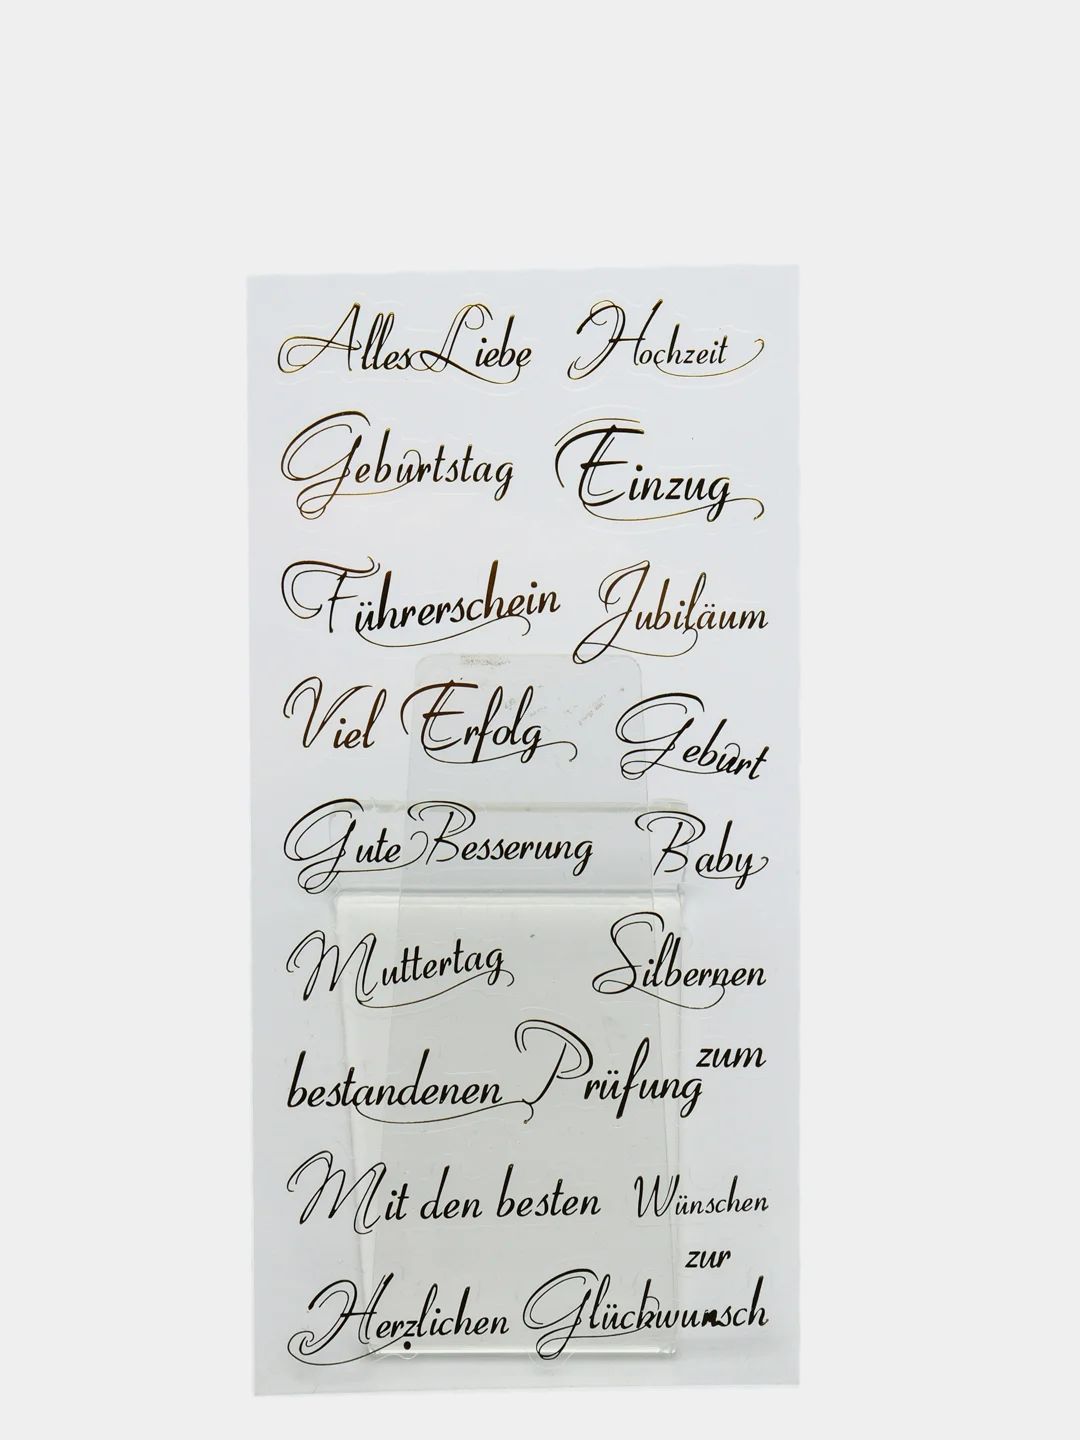 Alles Liebe Hochzeit
Geburtstag Einzug
Führerschein Jubiläum
Viel Erfolg Geburt
Gute Besserung Baby
Muttertag Silbernen
zum
bestandenen Prüfung
Mit den besten Wünschen
zur
Herzlichen Glückwunsch